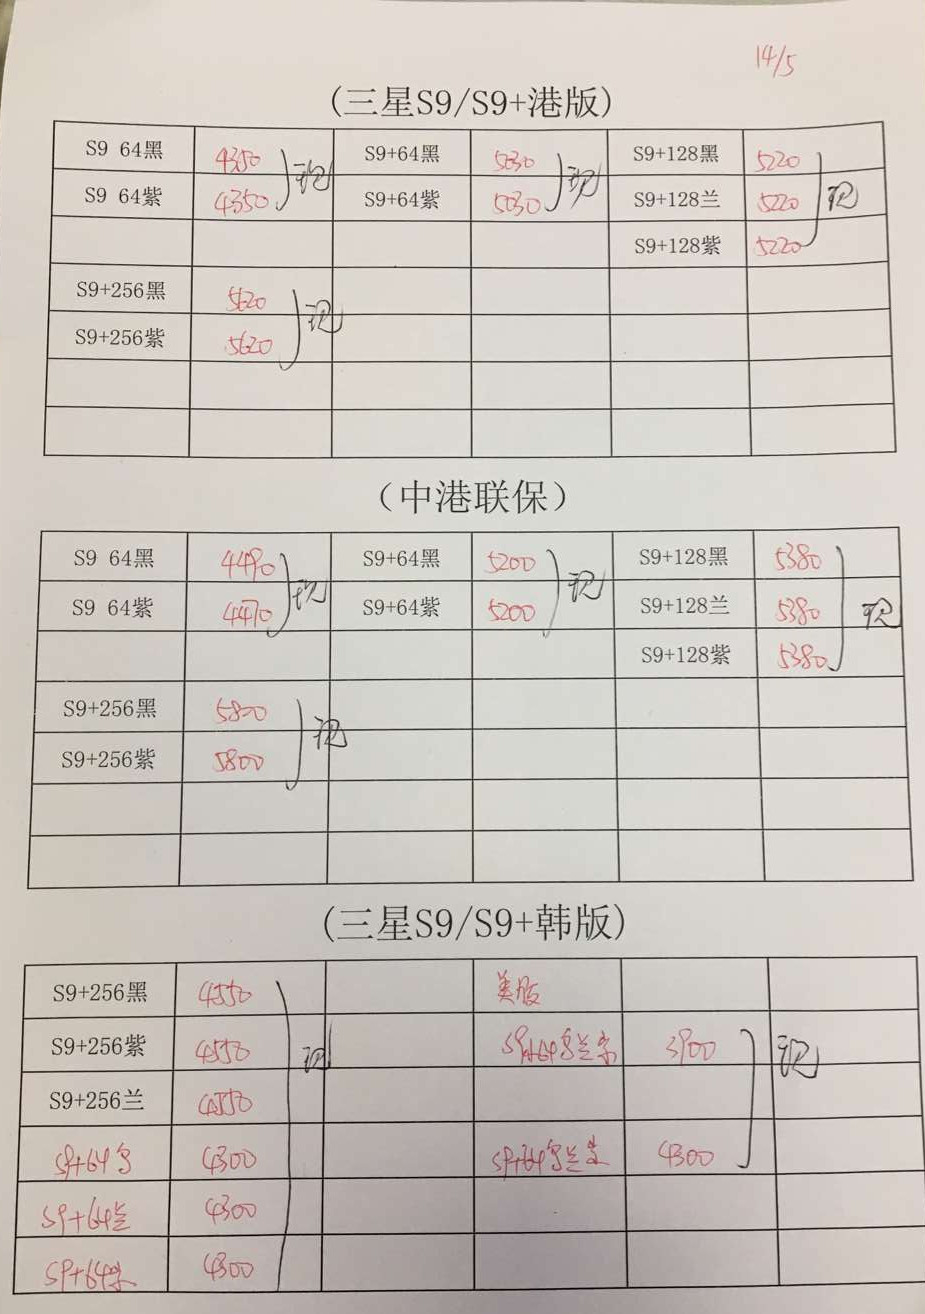 14/5
(三星S9/S9+港版)
S9 64黑 4350 S9+64黑 5030 S9+128黑 5220
现 现 现
S9 64紫 4350 S9+64紫 5030 S9+128兰 5220
S9+128紫 5220
S9+256黑 5620
现
S9+256紫 5620
(中港联保)
S9 64黑 4490 S9+64黑 5200 S9+128黑 5380
现 现 现
S9 64紫 4470 S9+64紫 5200 S9+128兰 5380
S9+128紫 5380
S9+256黑 5800
现
S9+256紫 5800
(三星S9/S9+韩版)
S9+256黑 4550 美版
S9+256紫 4550 现 3900 现
S9+256兰 4550
S9+64 4300 4300
S9+64兰 4300
S9+64紫 4300